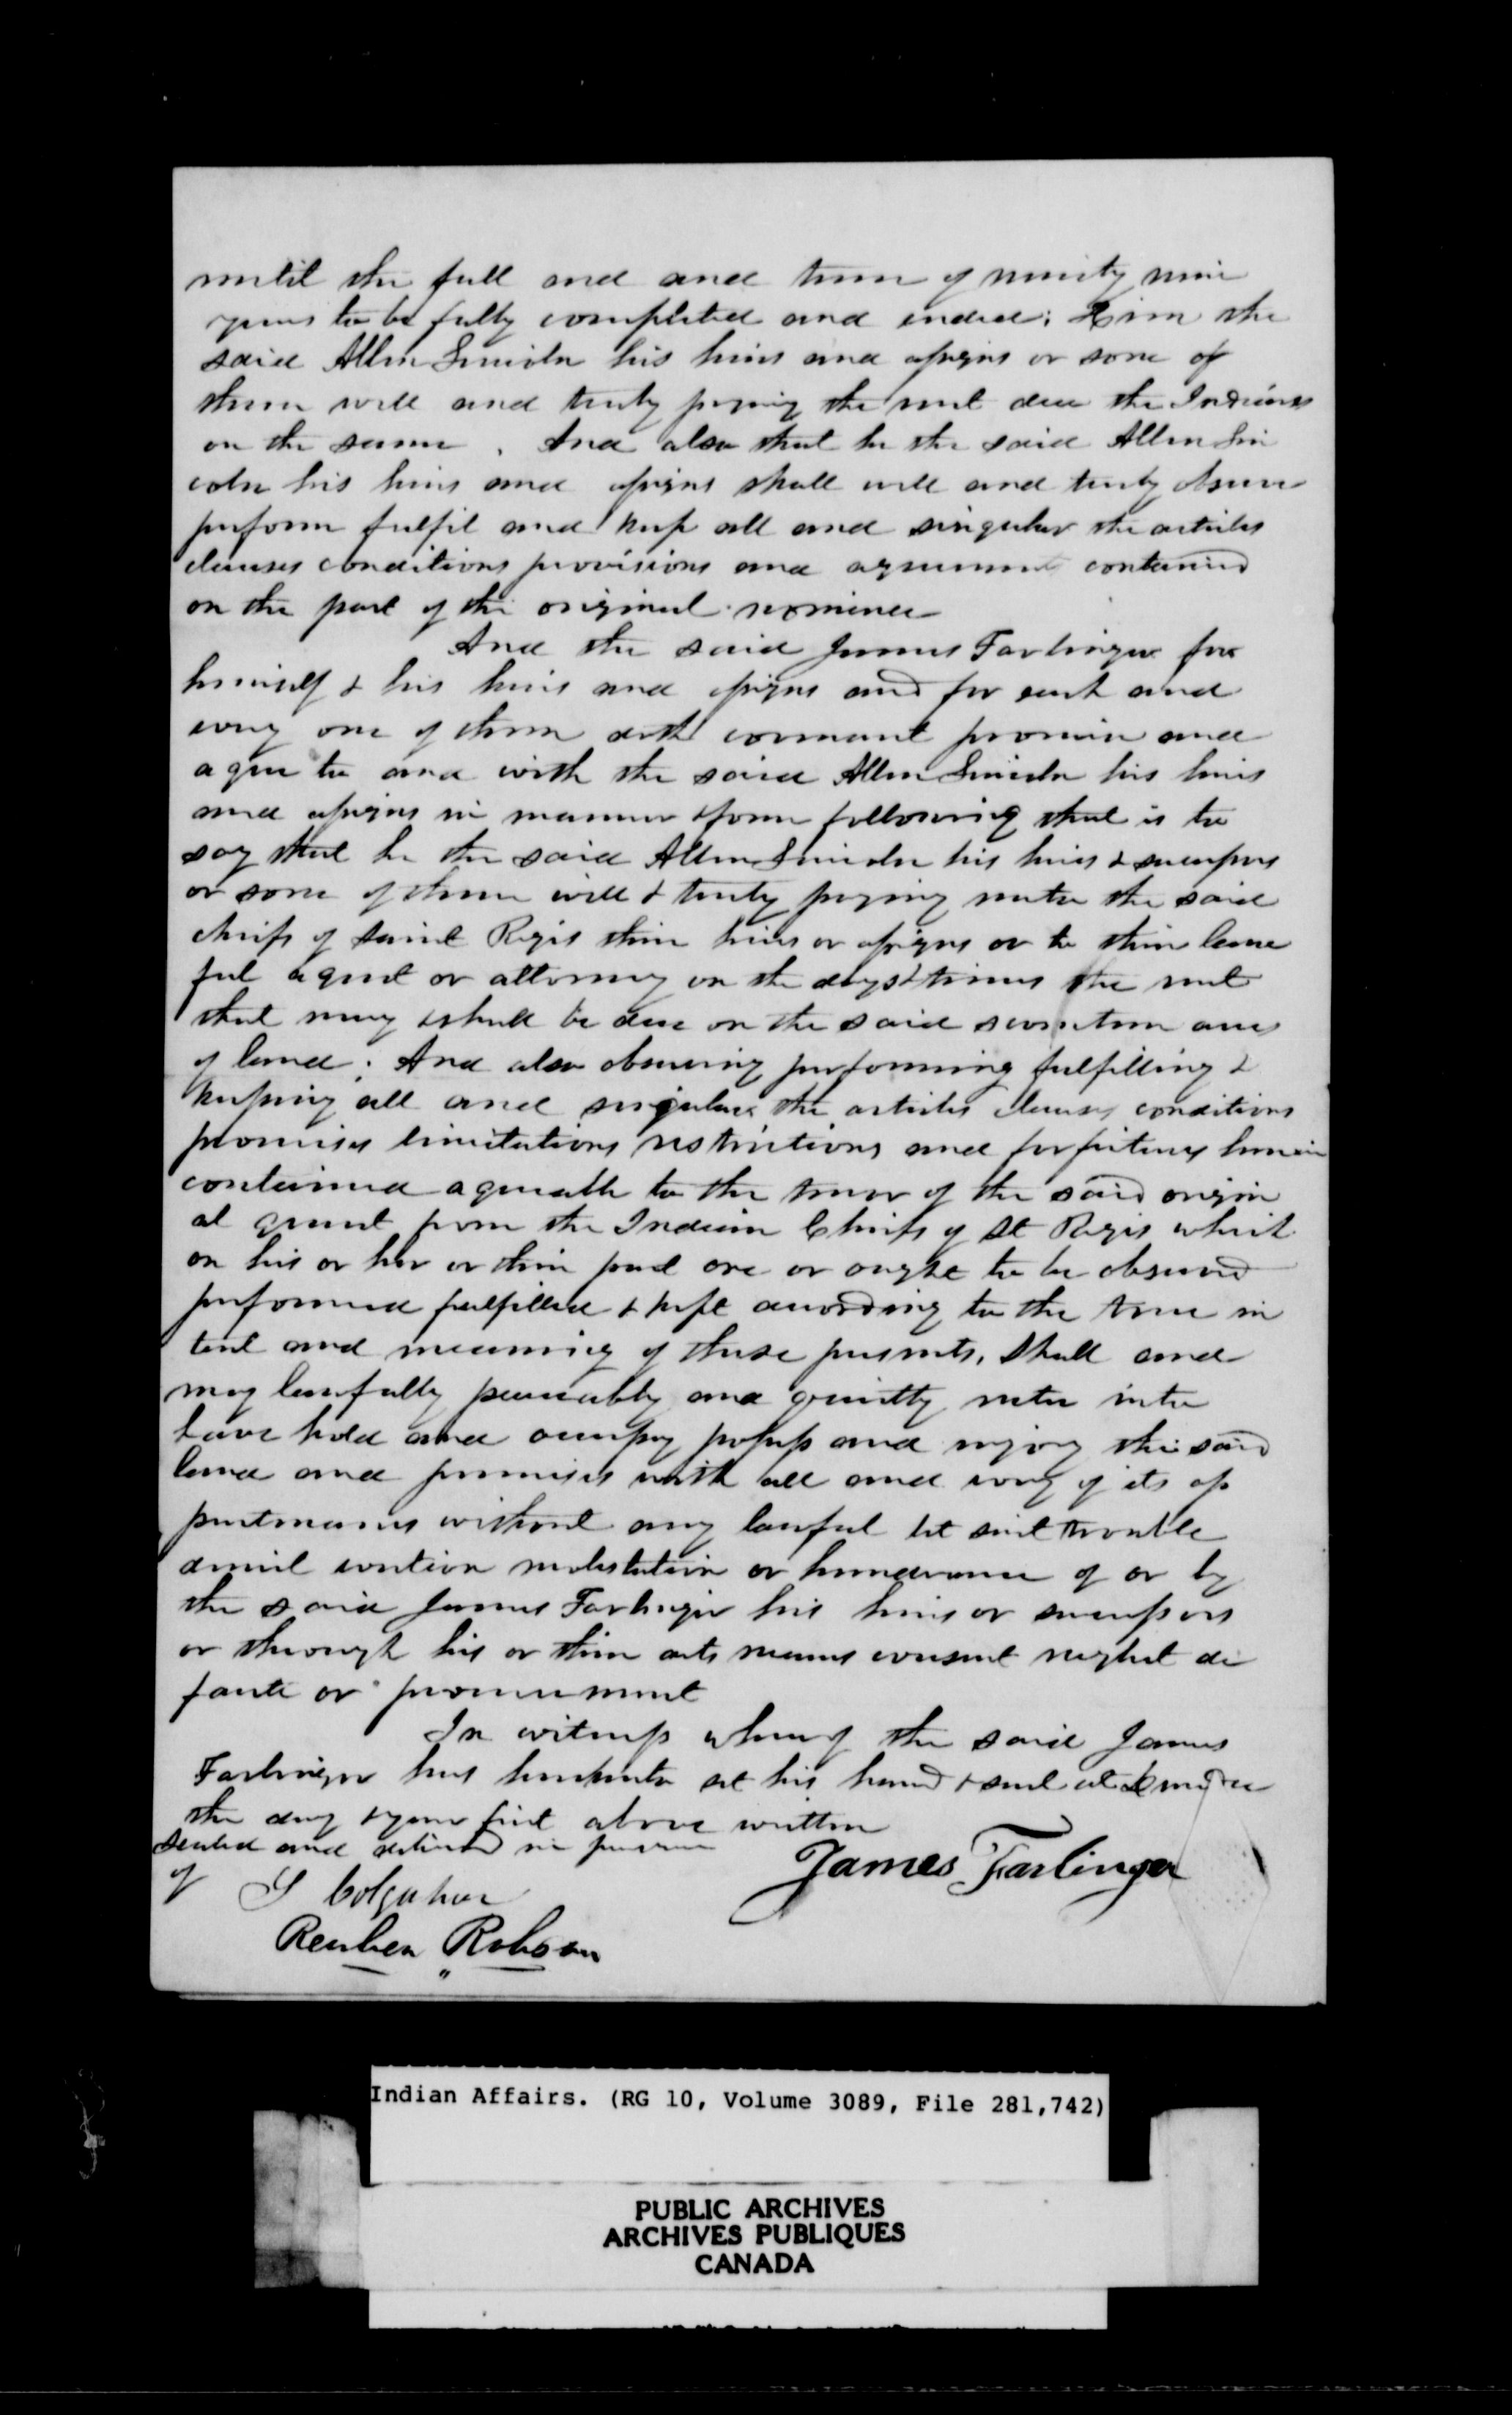 until the full end and term of ninety nine
years to be fully completed and ended; Him the
said Allen Lincoln his heirs and assigns or some of
them well and truly paying the rent due the Indians
on the same. And also that he the said Allen Lin
coln his heirs and assigns shall well and truly observe
perform fulfil and keep all and singular the articles
clauses conditions provisions and agreement contained
on the part of the original nominee
And the said James Farlinger for
himself & his heirs and assigns and for each and
every one of them doth covenant promise and
agree to and with the said Allen Lincoln his heirs
and assigns in manner & form following that is to
say that he the said Allen Lincoln his heirs & successors
or some of them well & truly paying unto the said
chiefs of Saint Regis their heirs or assigns or to their law
ful agent or attorney on the days & times the rent
that may & shall be due on the said seventeen acres
of land; And also observing performing fulfilling &
keeping all and singular the articles clauses conditions
promises limitations restrictions and forfeitures herein
contained agreeable to the tenor of the said origin
al grant from the Indian Chiefs of St Regis which
on his or her or their part are or ought to be observed
performed fulfilled & kept according to the true in
tent and meaning of these presents, Shall and
may lawfully peaceably and quietly enter into
have hold and occupy possess and enjoy the said
land and premises with all and every of its ap
purtenances without any lawful let suit trouble
denial eviction molestation or hinderance of or by
the said James Farlinger his heirs or successors
or through his or their acts means consent neglect de
fault or procurement
In witness whereof the said James
Farlinger has hereunto set his hand & seal at Dundee
the day & year first above written
Sealed and delivered in presence
of
James Farlinger
J Colquhoun
Reuben Robson
Indian Affairs. (RG 10, Volume 3089, File 281,742)
PUBLIC ARCHIVES
ARCHIVES PUBLIQUES
CANADA